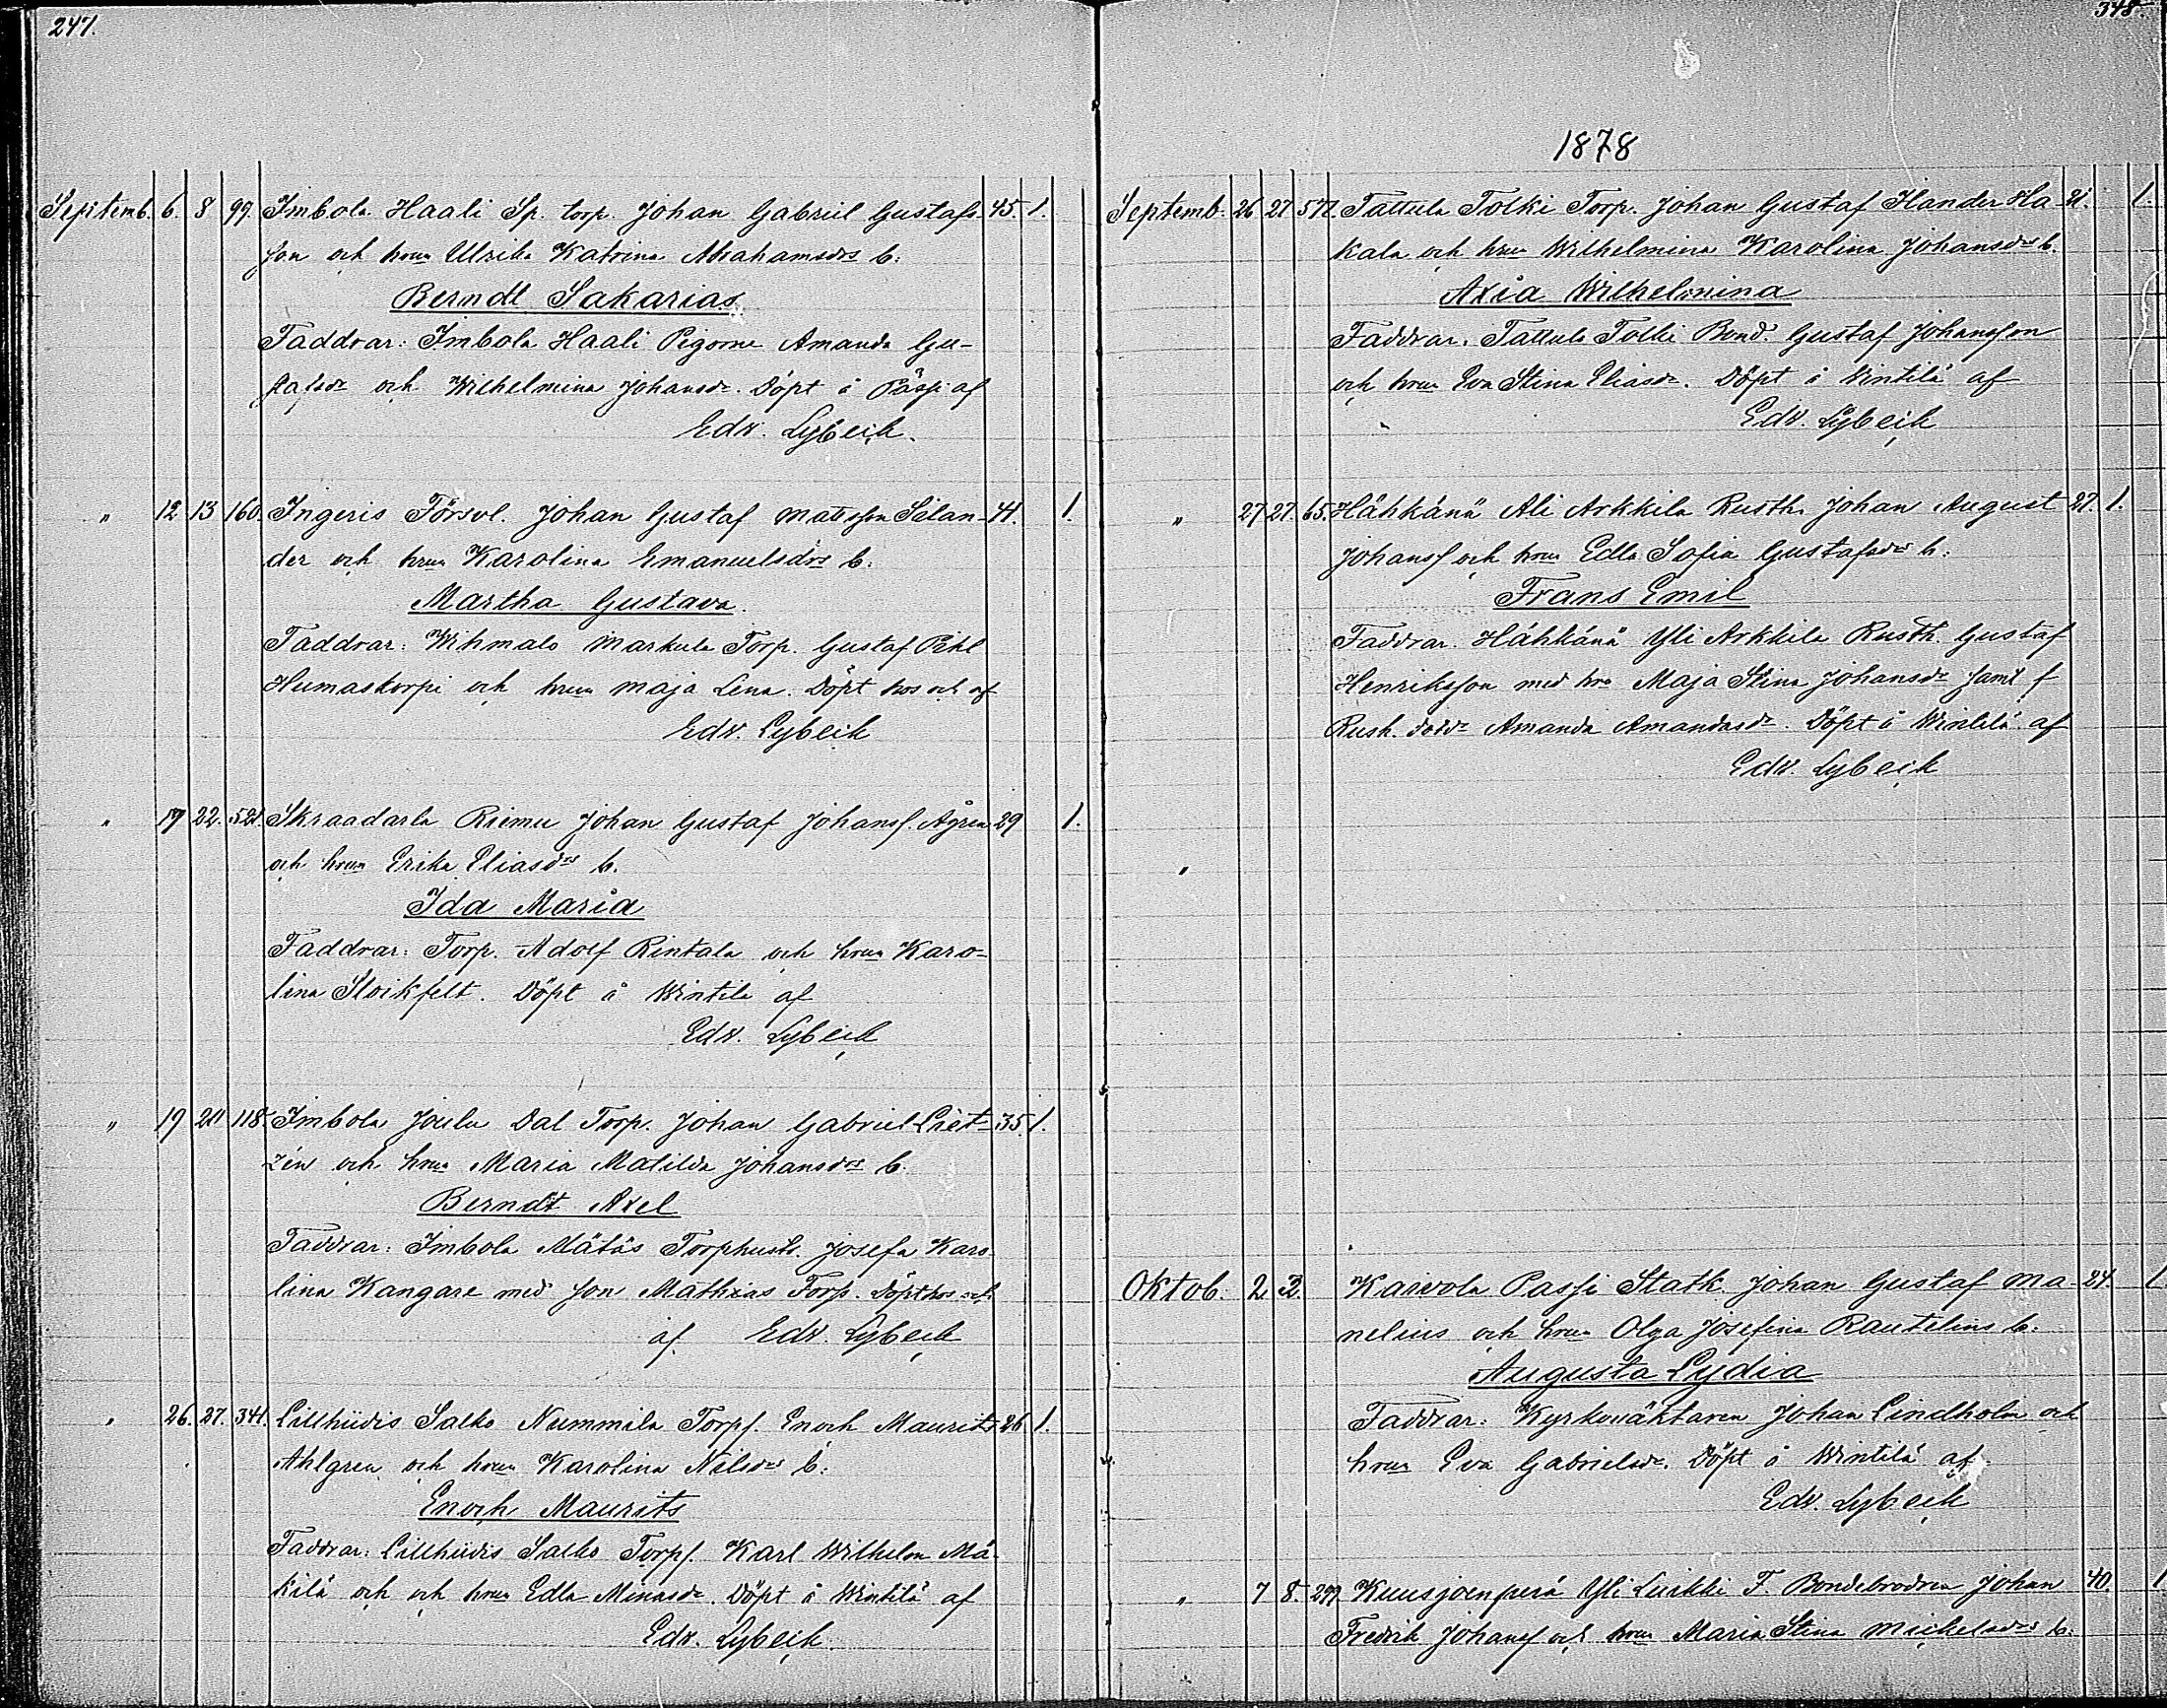 247.
Septemb. 6. 8 99. Imbola Haali Sp. torp. Johan Gabriel Gustafs- 45. 1.
son och hrun Ulrika Katrina Abrahamsdrs b:
Berndt Sakarias
Faddrar: Imbola Haali Pigorne Amanda Gu-
stafsdr och Wilhelmina Johansdr. Döpt å af
Edv. Lybeck.
" 12 13 160. Ingeris Försvl. Johan Gustaf Matsson Silan- 41. 1.
der och hrun Karolina Emanuelsdrs b:
Martha Gustava
Faddrar: Wihmalo Markula Torp. Gustaf Pihl
Humaskorpi och hrun Maja Lena. Döpt hos och af
Edv. Lybeck
" 19 22. 521. Skraadarla Riemu Johan Gustaf Johanss. Ågren 29 1.
och hrun Erika Eliasdrs b.
Ida Maria
Faddrar: Torp. Adolf Rintala och hrun Karo-
lina. Döpt å Wintilä af
Edv. Lybeck
" 19 20 118. Imbola Joulu Dal Torp. Johan Gabriel Liet- 35. 1.
zén och hrun Maria Matilda Johansdrs b.
Berndt Axel
Faddrar: Imbola Mätäs Torphustr. Josefa Karo-
lina Kangare med son Mathias Torp. Döpt hos och
af Edv. Lybeck
" 26. 27. 341. Lillhiidis Salko Nummila Torps. Enoch Maurits 26. 1.
Ahlgren och hrun Karolina Nilsdrs b:
Enoch Maurits
Faddrar: Lillhiidis Salko Torps. Karl Wilhelm Mä-
kilä och och hrun Edla Minasdr. Döpt å Wintilä af
Edv. Lybeck
348.
1878
Septemb. 26 27 577. Tattula Tolki Torp. Johan Gustaf Hander Ha- 21. 1.
kala och hrun Wilhelmina Karolina Johansdrs b.
Axia Wilhelmina
Faddrar. Tattula Tolki Bond. Gustaf Johansson
och hrun Eva Stina Eliasdr. Döpt å Wintilä af
Edv. Lybeck
" 27 27. 65. Hähkänä Ali Arkkila Rusth. Johan August 27. 1.
Johanss och hrun Edla Sofia Gustafsdrs b:
Frans Emil
Faddrar. Hähkänä Yli Arkkila Rusth. Gustaf
Henriksson med hru Maja Stina Johansdr samt f
Rusth. dottr Amanda Amandasdr. Döpt å Wintilä af
Edv. Lybeck
"
Oktob. 2 2. Kaivola Passi Statk. Johan Gustaf Ma- 24. 1
nelius och hrun Olga Josefina Rautelius b:
Augusta Lydia
Faddrar: Kyrkoväktaren Johan Lindholm och
hrun Eva Gabrielsdr. Döpt å Wintilä af
Edv. Lybeck
" 7 8. 299. Kuusjoenperä Yli Luikki F. Bondebrodren Johan 40. 1
Fredrik Johanss och hrun Maria Stina Michelsdrs b: